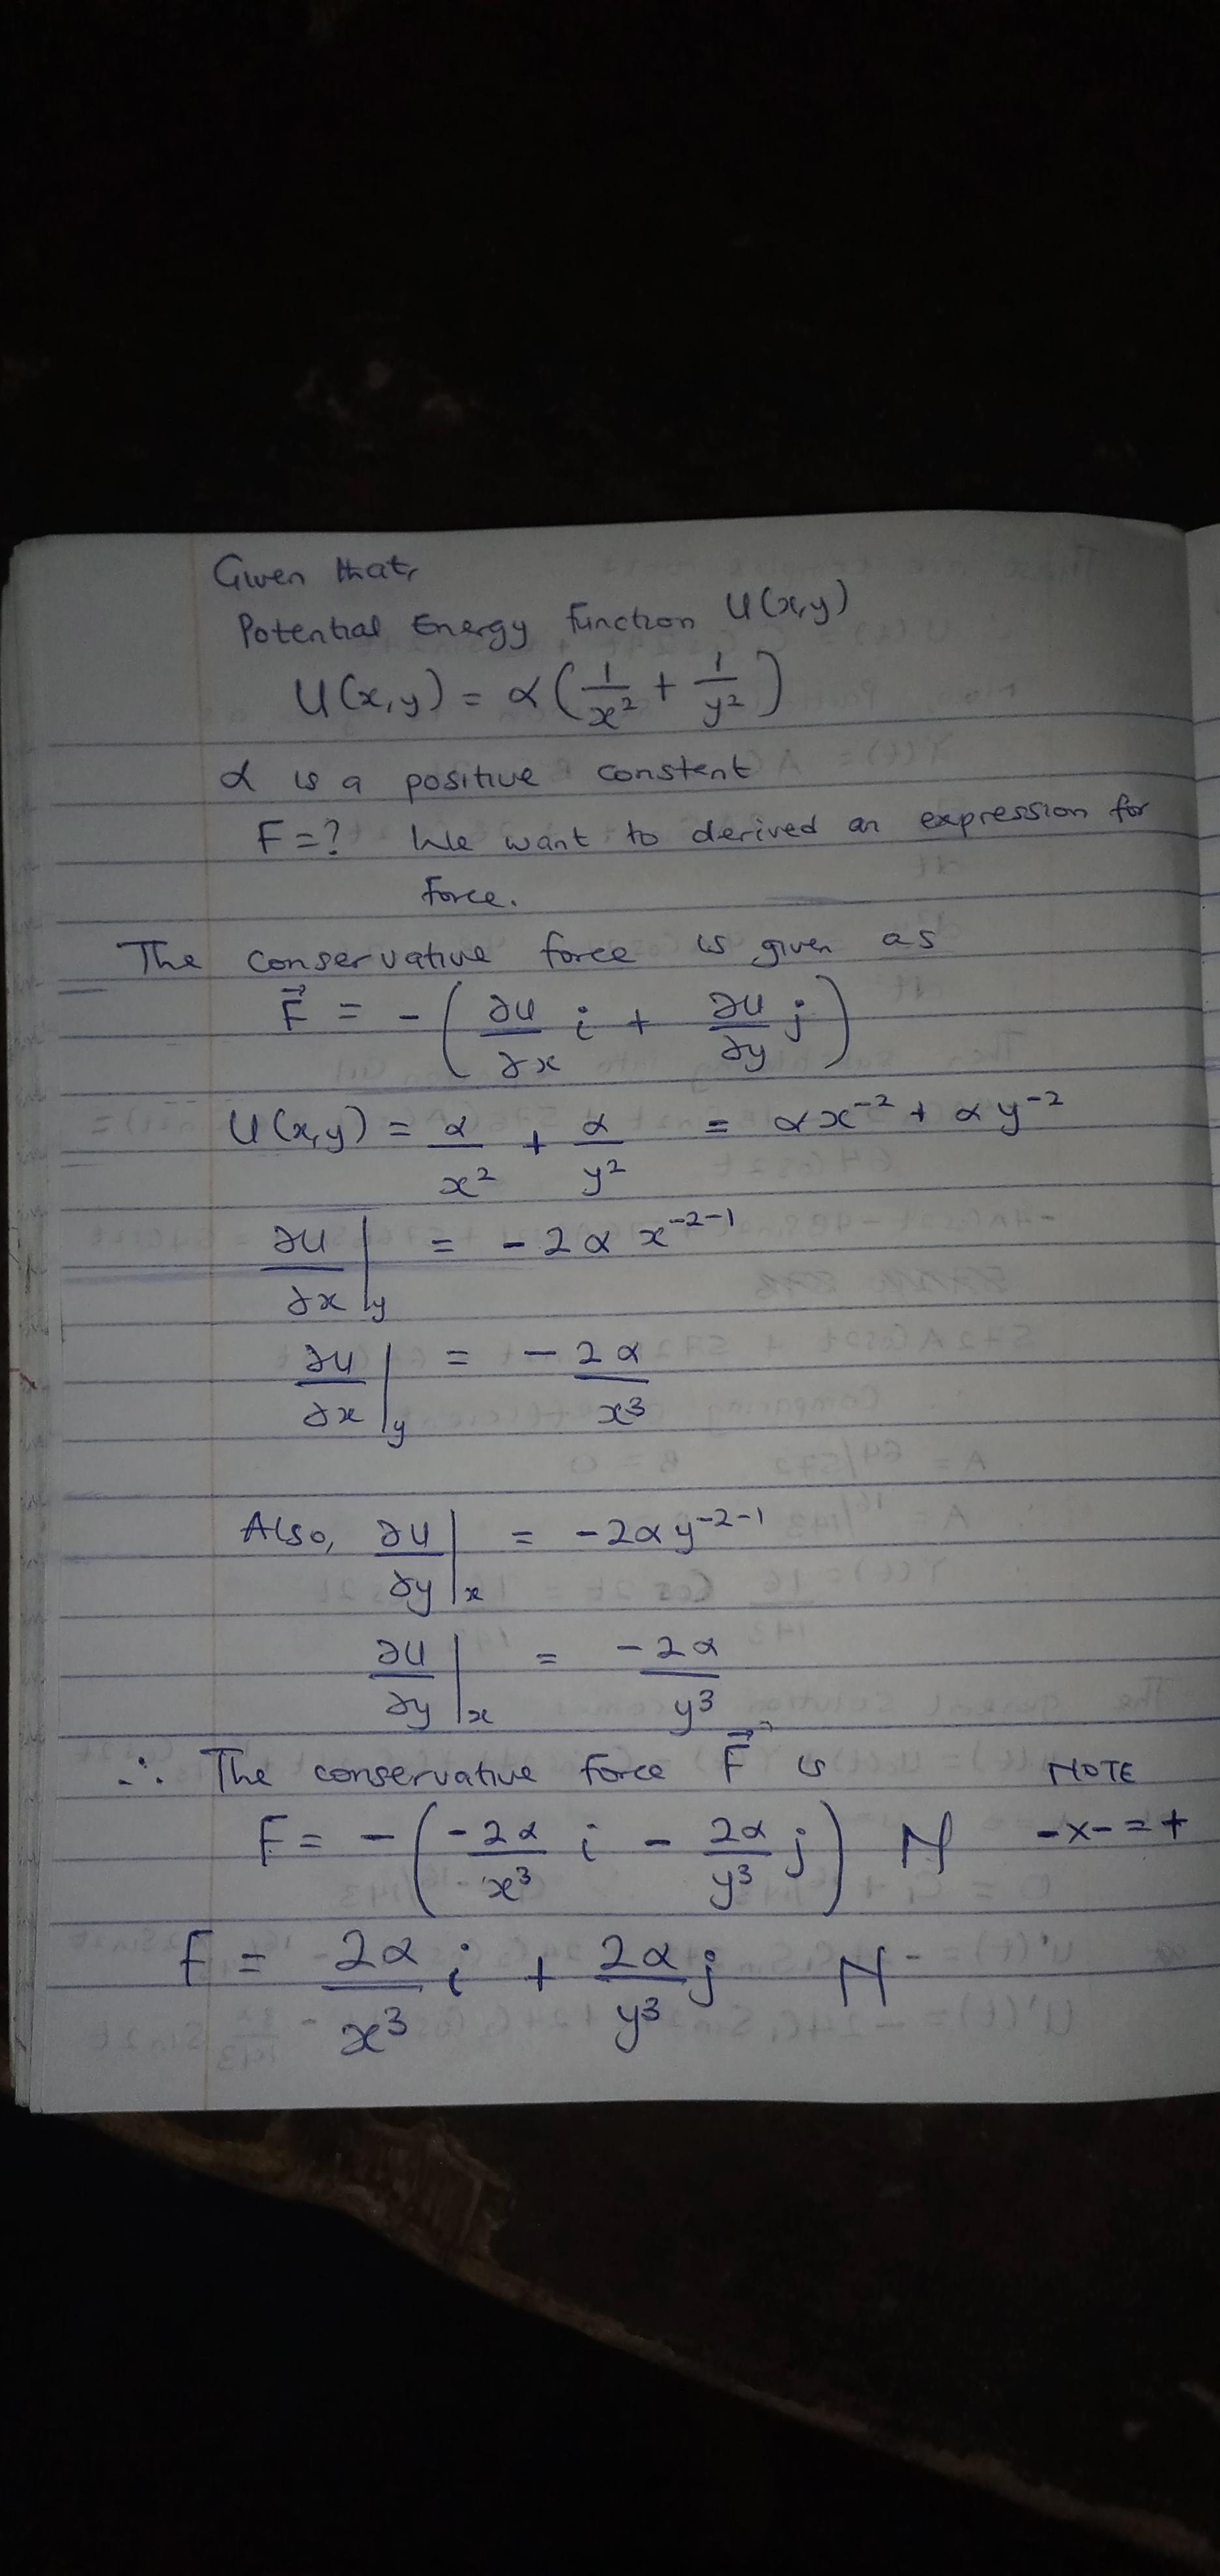 Given that,
Potential Energy function U(x,y)
U(x,y) = α(1/x² + 1/y²)
α is a positive constent
F=? We want to derived an expression for
force.
The conservative force is given as
F⃗ = -(∂u/∂x i + ∂u/∂y j)
U(x,y) = α/x² + α/y² = αx⁻² + αy⁻²
∂u/∂x|y = -2αx⁻²⁻¹
∂u/∂x|y = -2α/x³
Also, ∂u/∂y|x = -2αy⁻²⁻¹
∂u/∂y|x = -2α/y³
∴ The conservative force F⃗ is NOTE
F = -(-2α/x³ i - 2α/y³ j) N -x- = +
F = 2α/x³ i + 2α/y³ j N